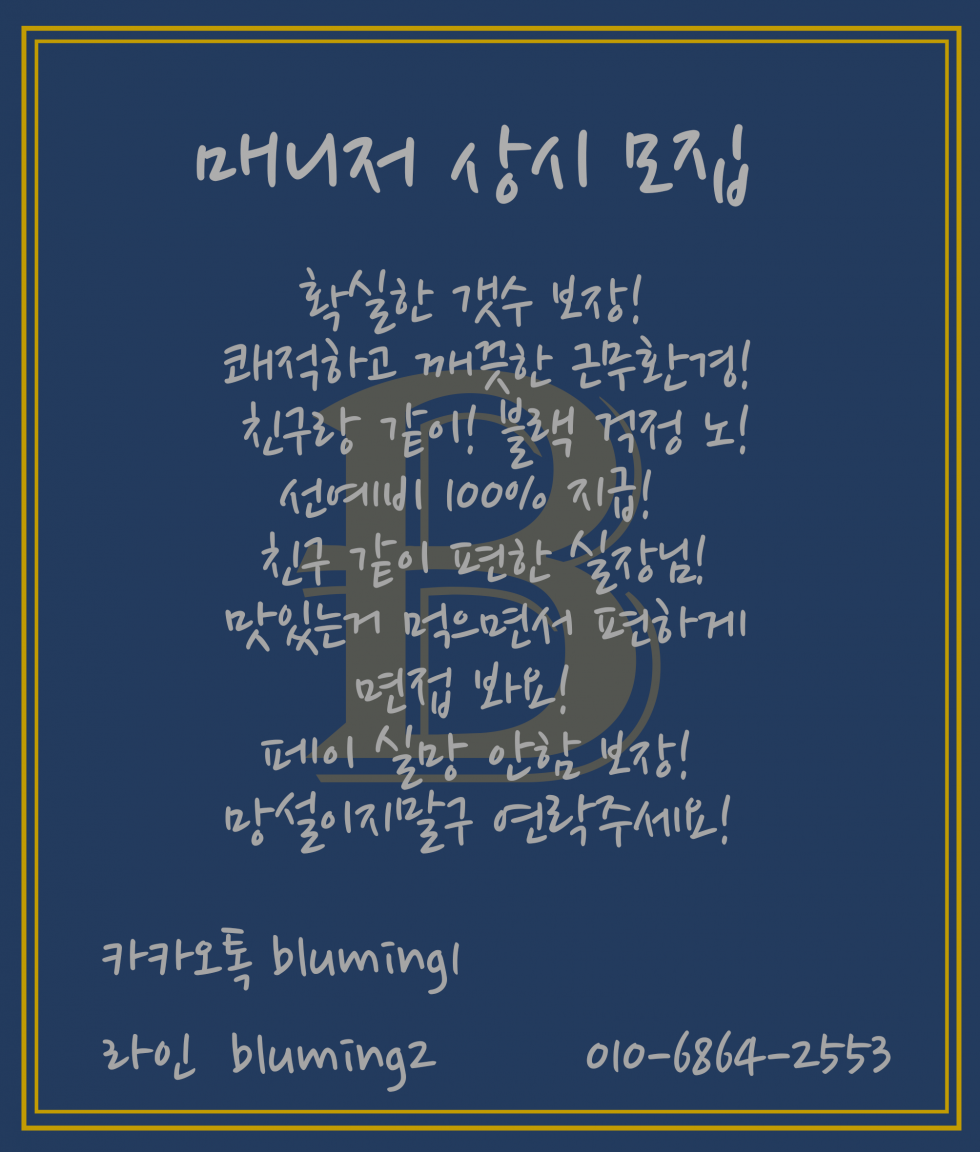 매니저 상시 모집
확실한 갯수 보장!
쾌적하고 깨끗한 근무환경!
친구랑 같이! 블랙 걱정 노!
선예비 100% 지급!
친구 같이 편한 실장님!
맛있는거 먹으면서 편하게
면접 봐요!
페이 실망 안함 보장!
망설이지말구 연락주세요!
카카오톡 bluming1
라인 bluming2 010-6864-2553
B